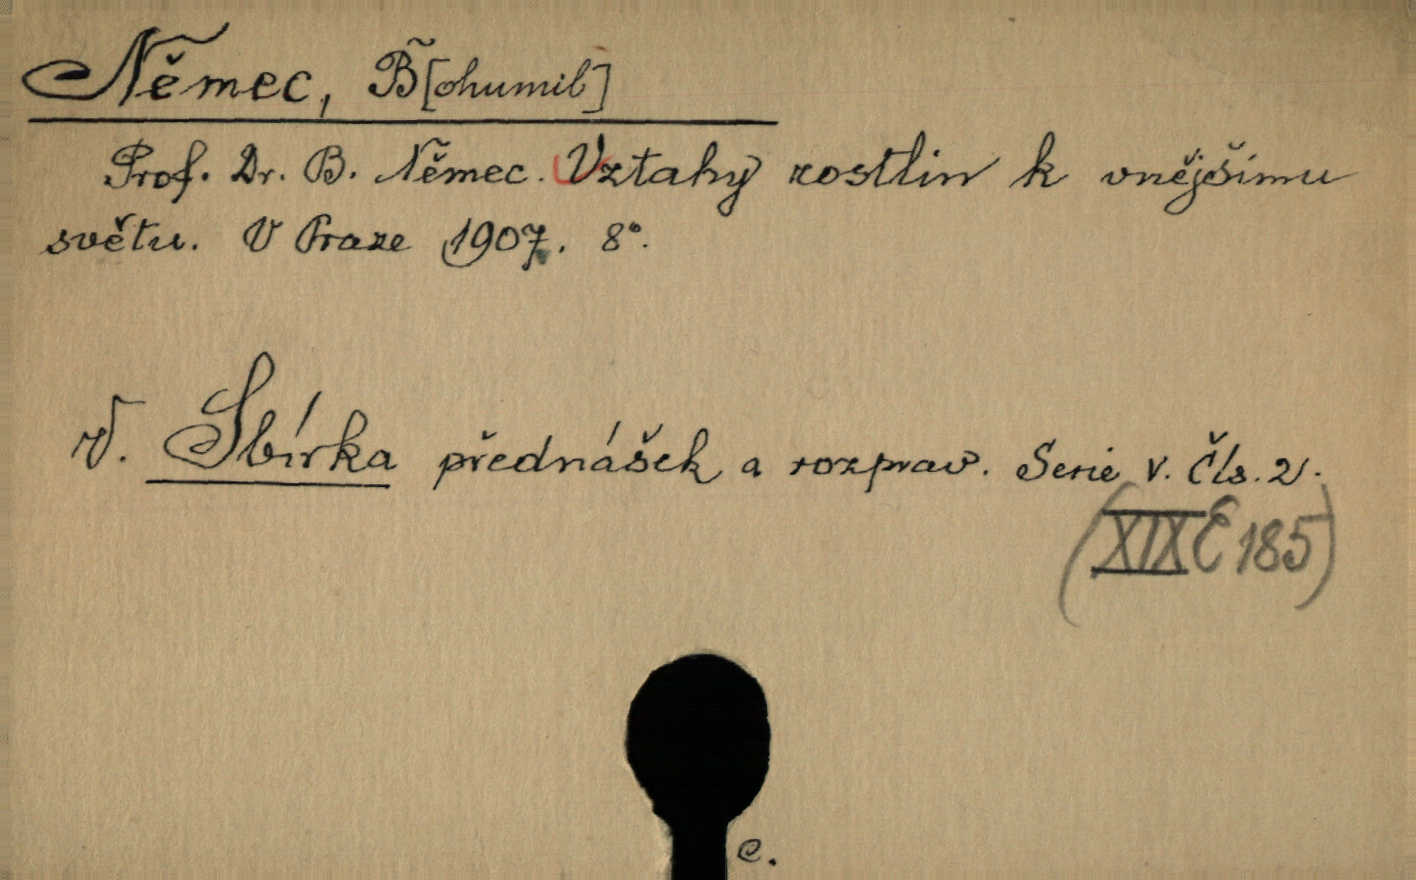 Němec, B[ohumil]
Prof. Dr. B. Němec. Vztahy rostlin k vnějšímu
světu. V Praze 1907. 8°.
V. Sbírka přednášek a rozprav. Serie V. Čís. 2.
(XIX E 185)
c.